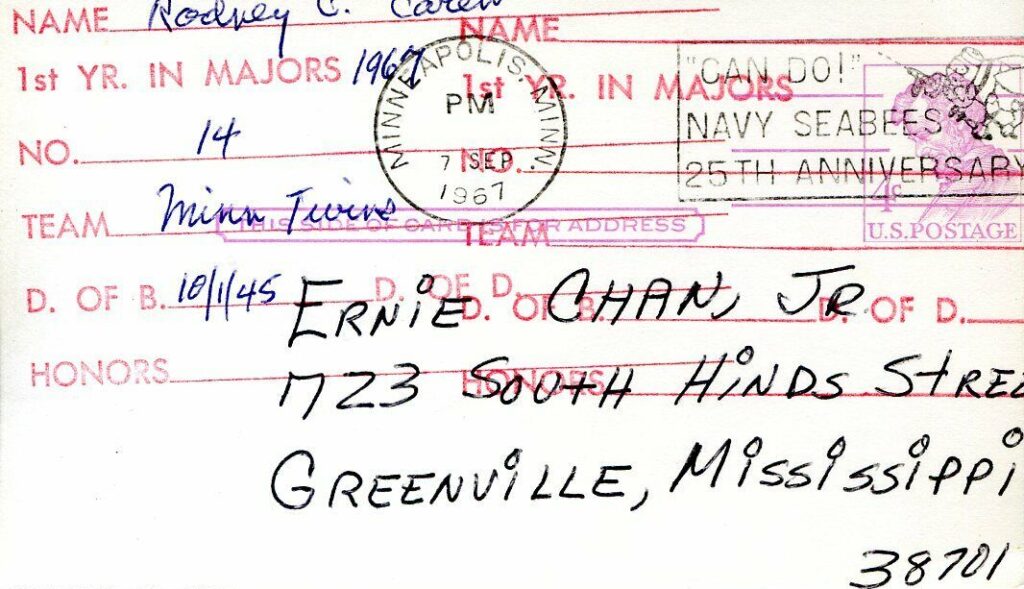 NAME Rodney C. Carew NAME
1st YR. IN MAJORS 1967 1st YR. IN MAJORS
MINNEAPOLIS, MINN.
PM
7 SEP
1967
"CAN DO!"
NAVY SEABEES
25TH ANNIVERSARY
NO. 14 NO.
4c
U.S. POSTAGE
TEAM Minn Twins TEAM
THIS SIDE OF CARD IS FOR ADDRESS
D. OF B. 10/1/45 D. OF D. D. OF B. D. OF D.
HONORS HONORS
ERNiE CHAN, JR
1723 SOUTH HiNDS STREE
GREENVILLE, MiSSiSSiPPi
38701